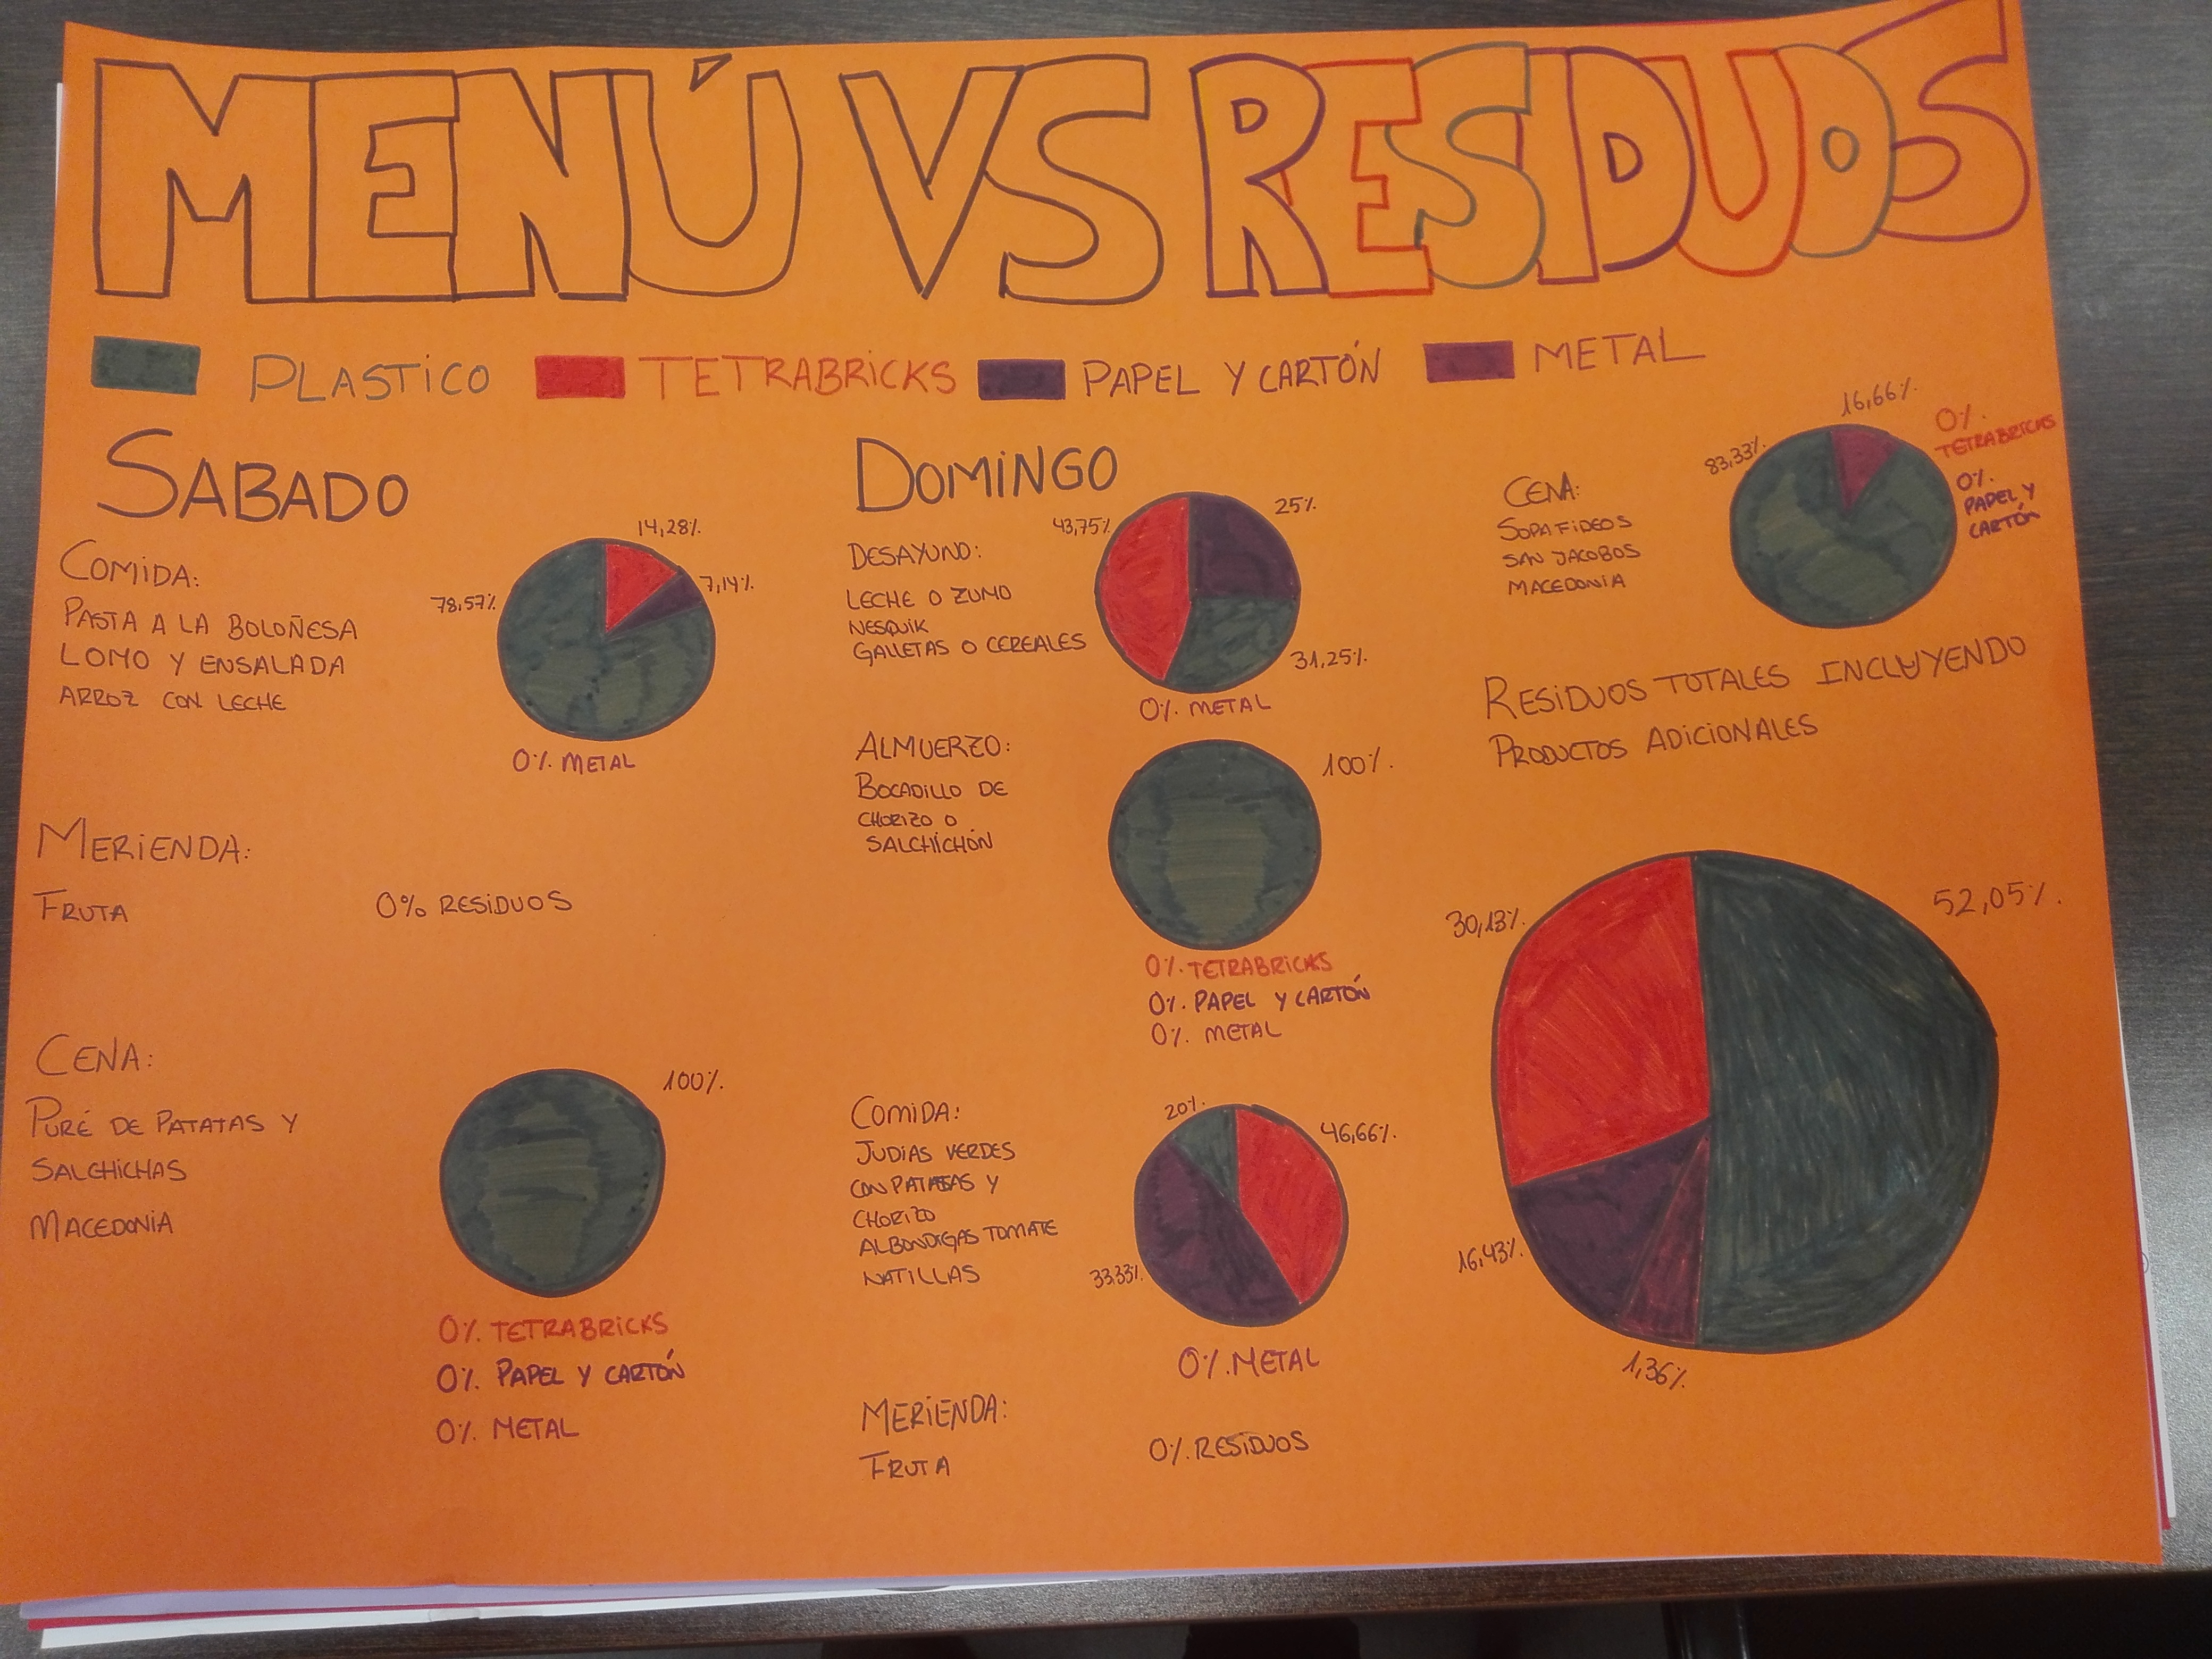 MENÚ VS RESIDUOS
PLASTICO TETRABRICKS PAPEL Y CARTÓN METAL
SABADO
COMIDA:
PASTA A LA BOLOÑESA
LOMO Y ENSALADA
ARROZ CON LECHE
14,28%
7,14%
78,57%
0% METAL
MERIENDA:
FRUTA
0% RESIDUOS
CENA:
PURÉ DE PATATAS Y
SALCHICHAS
MACEDONIA
100%
0% TETRABRICKS
0% PAPEL Y CARTÓN
0% METAL
DOMINGO
DESAYUNO:
LECHE O ZUMO
NESQUIK
GALLETAS O CEREALES
43,75%
25%
31,25%
0% METAL
ALMUERZO:
BOCADILLO DE
CHORIZO O
SALCHICHÓN
100%
0% TETRABRICKS
0% PAPEL Y CARTÓN
0% METAL
COMIDA:
JUDIAS VERDES
CON PATATAS Y
CHORIZO
ALBONDIGAS TOMATE
NATILLAS
20%
46,66%
33,33%
0% METAL
MERIENDA:
FRUTA
0% RESIDUOS
CENA:
SOPA FIDEOS
SAN JACOBOS
MACEDONIA
83,33%
16,66%
0%
TETRABRICKS
0%
PAPEL Y
CARTÓN
RESIDUOS TOTALES INCLUYENDO
PRODUCTOS ADICIONALES
30,13%
52,05%
16,43%
1,36%